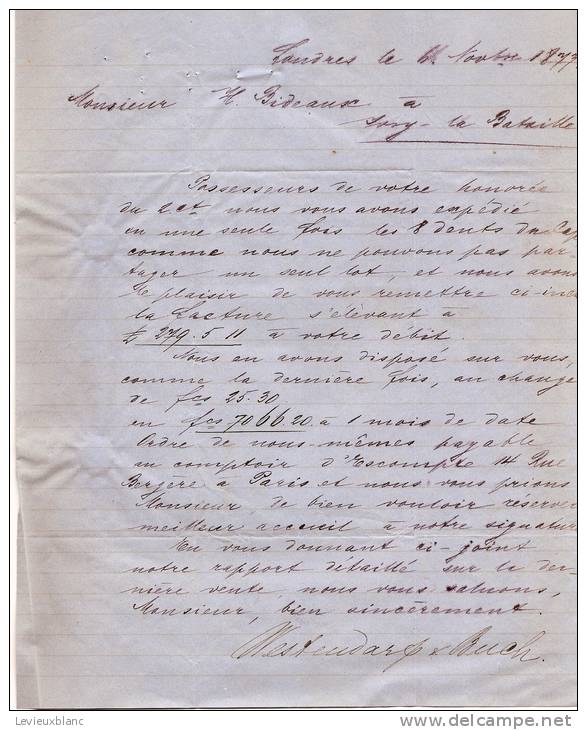 Londres le Novbre 1873
Monsieur H. Bideaux à
Ivry-la Bataille
Possesseurs de votre honorée
du 2 ct nous vous avons expédié
en une seule fois les 8 dents du Cap
comme nous ne pouvons pas par-
tager un seul lot, et nous avons
le plaisir de vous remettre ci-inc
la facture s'élevant à
£ 279.5.11 à votre débit.
Nous en avons disposé sur vous,
comme la dernière fois, au change
de fcs 25.30
en fcs 7066.20 à 1 mois de date
Ordre de nous-mêmes payable
au comptoir d'Escompte 14 Rue
Bergère à Paris et nous vous prions
Monsieur de bien vouloir réserver
meilleur accueil à notre signatur
En vous donnant ci-joint
notre rapport détaillé sur la der-
nière vente, nous vous saluons,
Monsieur, bien sincèrement.
Westendarp & Buch.
Levieuxblanc
www.delcampe.net